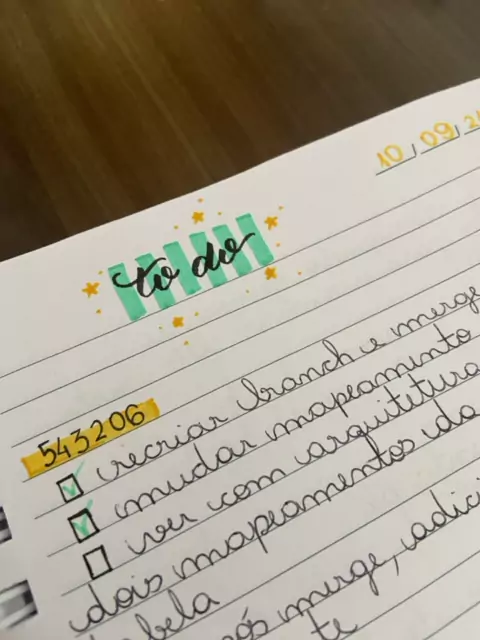 10/09/2
to do
543206
recriar branch e merge
mudar mapeamento
ver com arquitetura
dois mapeamentos da
tabela
pós merge, adici
te